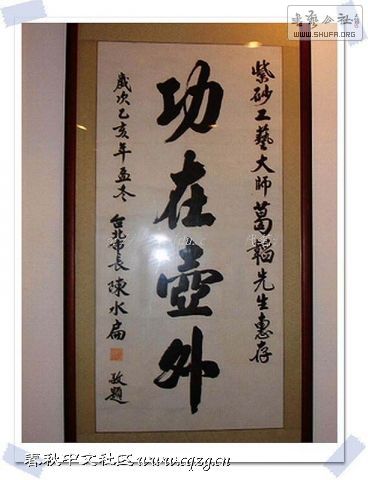 紫砂工藝大師葛韜先生惠存
功在壺外
歲次乙亥年孟冬
台北市長陳水扁
敬題
書藝公社
WWW.SHUFA.ORG
春秋中文社区www.cqzg.cn